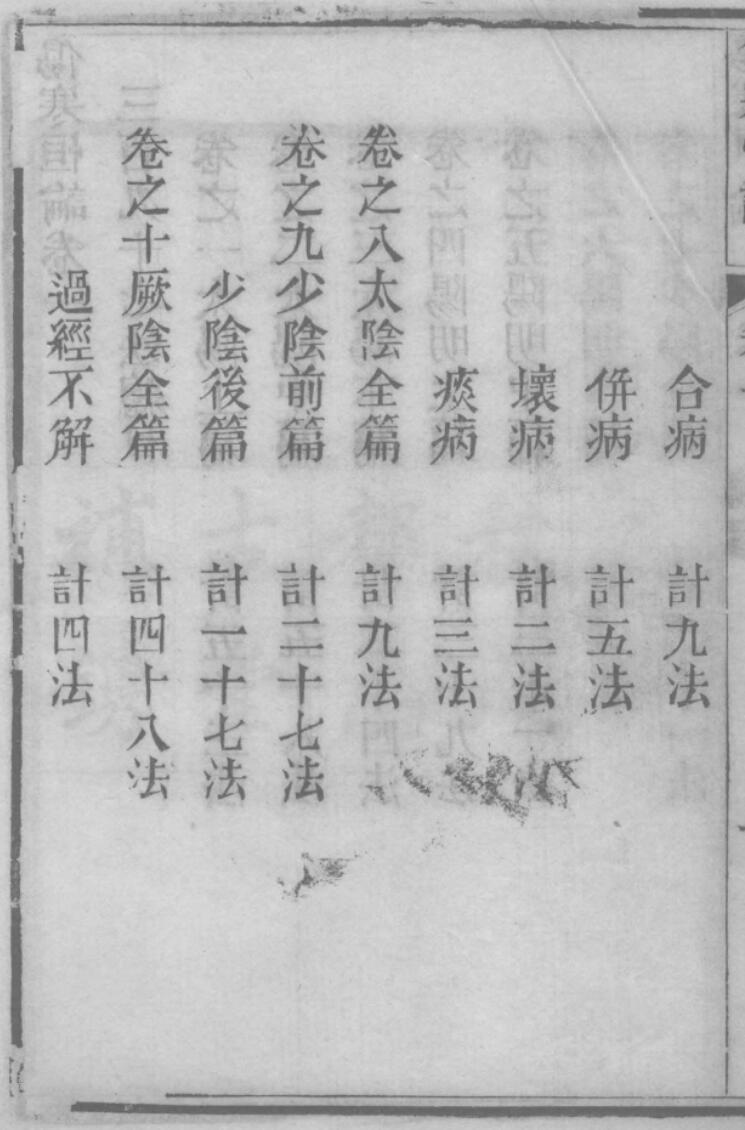 合病 計九法
併病 計五法
壞病 計二法
痰病 計三法
卷之八太陰全篇 計九法
卷之九少陰前篇 計二十七法
少陰後篇 計一十七法
卷之十厥陰全篇 計四十八法
過經不解 計四法